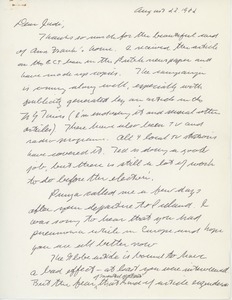 August 23 1986
Dear Jude,
Thanks so much for the beautiful card
of Ann Frank's home. I received the article
on the
have made up
is coming along well, especially with
publicity generated by an article in the
N Y Times (I'm enclosing it and several other
articles) There have also been TV and
radio programs. All 4 local TV stations
have covered it. Ted is doing a good
job, but there is still a lot of work
to do before the election.
called me a few days
after your departure to I
was sorry to hear that you had
pneumonia while in Europe and hope
you are all better now
The Globe article is bound to have
a bad effect - at least you were interviewed
But the that kind of article engenders